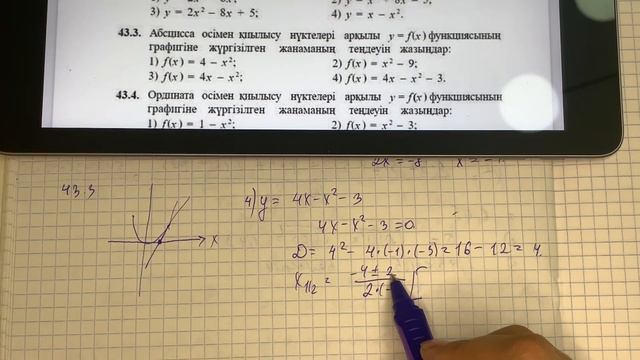 3) y = 2x² − 8x + 5; 4) y = x − x².
43.3. Абсцисса осімен қиылысу нүктелері арқылы y = f(x) функциясының
графигіне жүргізілген жанаманың теңдеуін жазыңдар:
1) f(x) = 4 − x²; 2) f(x) = x² − 9;
3) f(x) = 4x − x²; 4) f(x) = 4x − x² − 3.
43.4. Ордината осімен қиылысу нүктелері арқылы y = f(x) функциясының
графигіне жүргізілген жанаманың теңдеуін жазыңдар:
1) f(x) = 1 − x²; 2) f(x) = x² − 3;
43.3
x
4) y = 4x − x² − 3
4x − x² − 3 = 0
D = 4² − 4·(−1)·(−3) = 16 − 12 = 4
x1/2 = −4 ± 2
2·(−